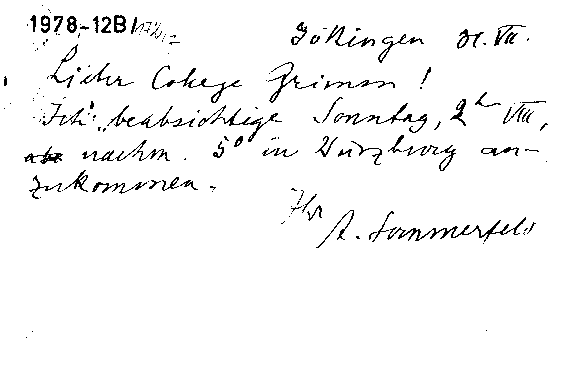 1978-12B/
Göttingen 31. VII.
Lieber College Grimm!
Ich beabsichtige Sonntag, 2ten VIII,
nachm. 5° in Würzburg an-
zukommen.
Ihr
A. Sommerfeld